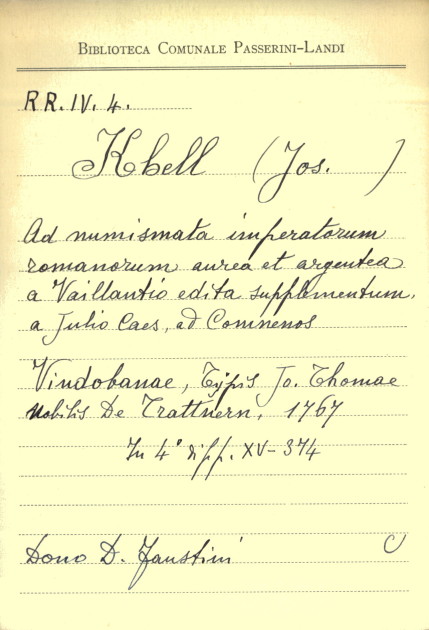 BIBLIOTECA COMUNALE PASSERINI-LANDI
RR. IV. 4.
Khell (Jos. )
Ad numismata imperatorum
romanorum aurea et argentea
a Vaillantio edita supplementum.
a Julio Caes. ad Comnenos
Vindobanae, Typis Jo. Thomae
Nobilis De Trattnern, 1767
In 4° di pp. XV-374
Dono D. Faustini C